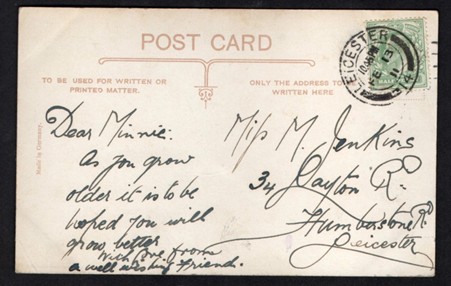 POST CARD
TO BE USED FOR WRITTEN OR
PRINTED MATTER.
ONLY THE ADDRESS TO
WRITTEN HERE
Made in Germany.
LEICESTER
FE 13
11
Dear Minnie:
As you grow
older it is to be
hoped you will
grow better
With love from
a well wishing Friend.
Miss M. Jenkins
34 Layton Rd.
Humberstone Rd
Leicester